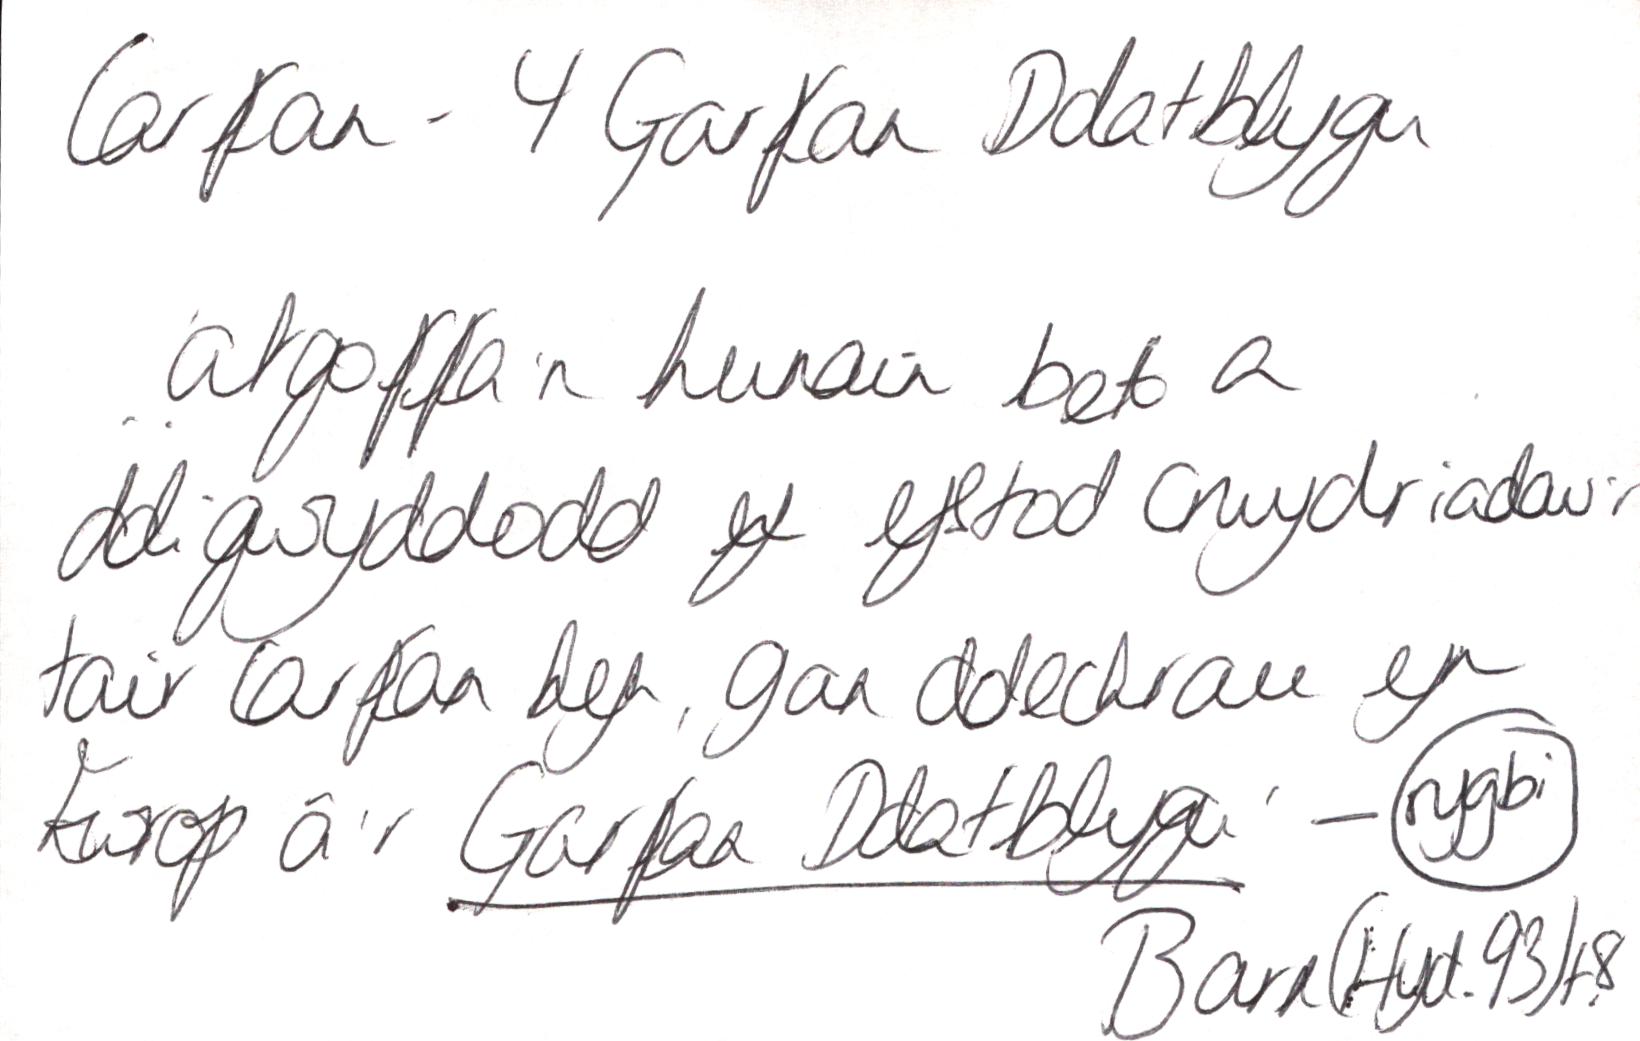 Carfan - Y Garfan Ddatblygu
atgoffa'n hunain beth a
ddigwyddodd yn ystod crwydriadau'r
tair carfan hyn, gan ddechrau yn
Ewrop â'r Garfan Ddatblygu' - rygbi
Barn (Hyd. 93) t.8